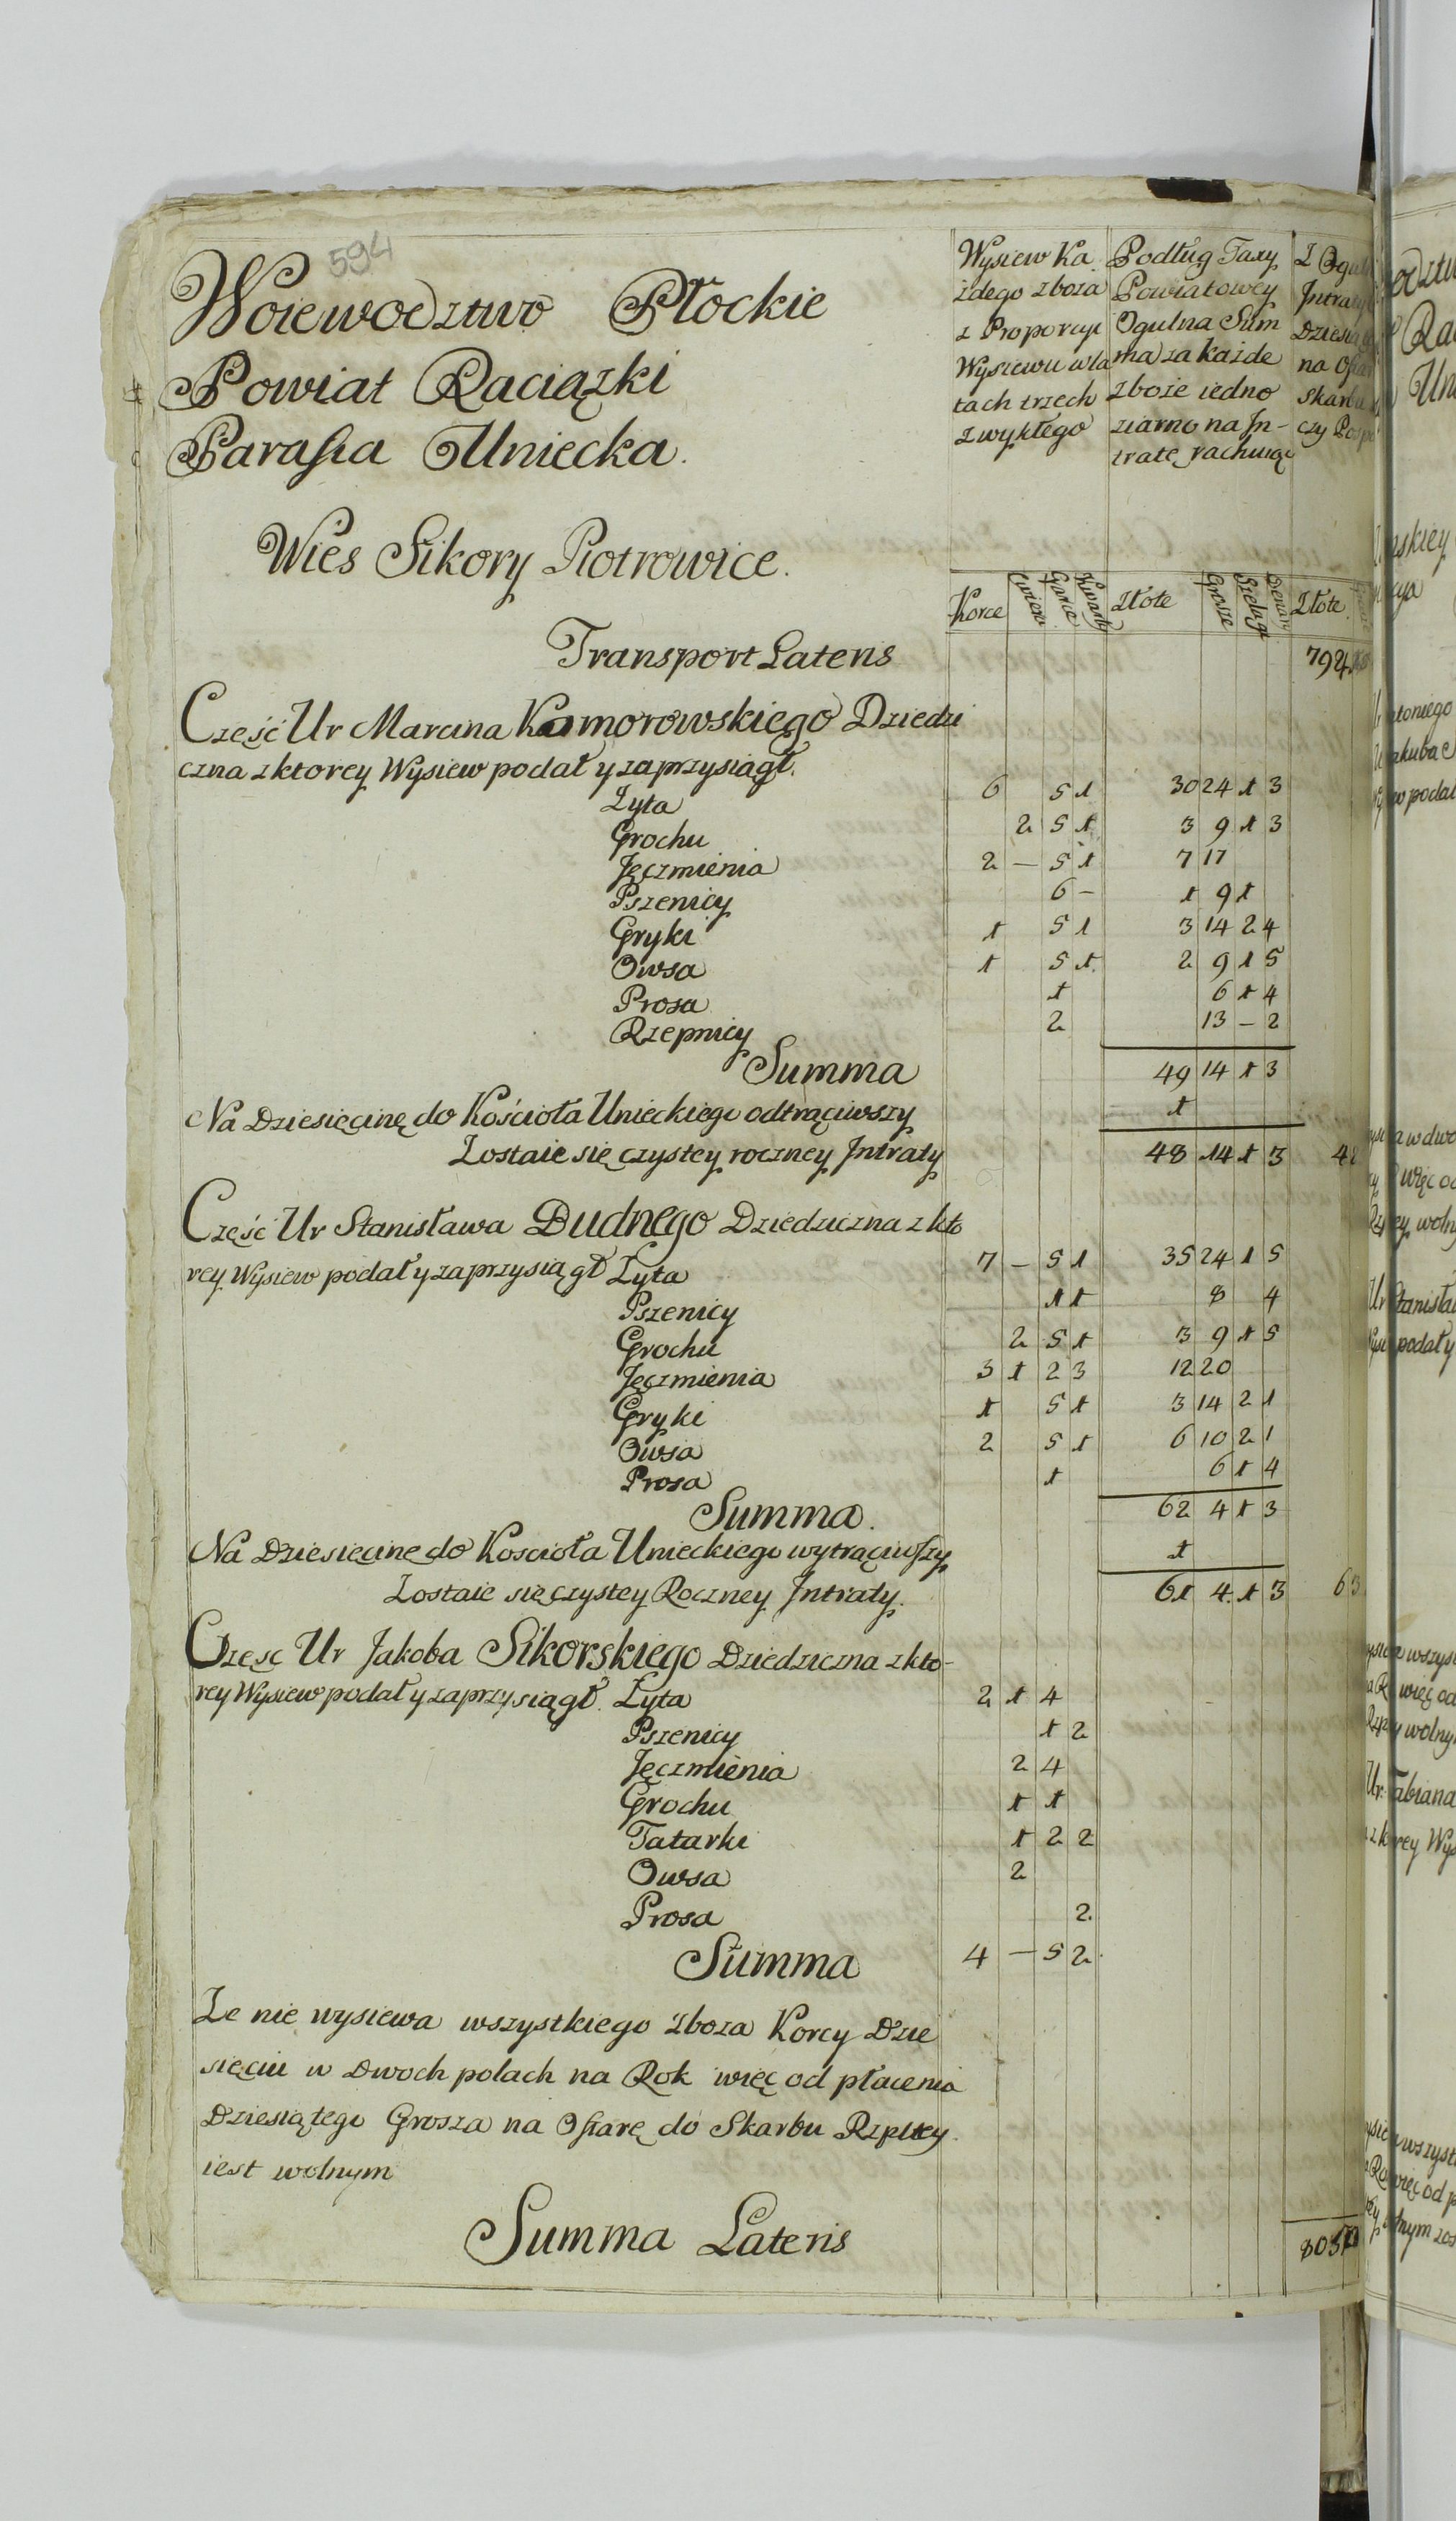 594
Woiewodztwo Płockie
Powiat Raciązki
Parafia Uniecka.
Wies Sikory Piotrowice.
Wysiew Ka
żdego zboza
z Proporcyi
Wysiewu w la
tach trzech
zwykłego
Podług Taxy
Powiatowey
Ogulna Sum
ma za kaide
zboże iedno
ziarno na In-
tratę rachuiąc
Z Ogul
Intraty
Dziesią
na Ofiar
Skarbu
czy Posp
Korce Cwierci Garce Kwarty Złote Grosze Szelągi Denary Złote
Transport Lateris 794
Część Ur Marcina Komorowskiego Dziedzi
czna z ktorey Wysiew podał y zaprzysiągł.
Żyta 6 5 1 30 24 1 3
Grochu 2 5 1 3 9 1 3
Jęczmienia 2 — 5 1 7 17
Pszenicy 6 – 1 9 1
Gryki 1 5 1 3 14 2 4
Owsa 1 5 1 2 9 1 5
Prosa 1 6 1 4
Rzepnicy 2 13 – 2
Summa 49 14 1 3
Na Dziesięcinę do Kościoła Unieckiego odtrąciwszy 1
Zostaie się czystey roczney Intraty 48 14 1 3
Część Ur Stanisława Dudnego Dziedziczna z kto
rey Wysiew podał y zaprzysiągł Żyta 7 – 5 1 35 24 1 5
Pszenicy 1 1 8 4
Grochu 2 5 1 3 9 1 5
Jęczmienia 3 1 2 3 12 20
Gryki 1 5 1 3 14 2 1
Owsa 2 5 1 6 10 2 1
Prosa 1 6 1 4
Summa. 62 4 1 3
Na Dziesięcinę do Koscioła Unieckiego wytrąciwszy 1
Zostaie się czystey Roczney Intraty. 61 4 1 3 63
Częsc Ur Jakoba Sikorskiego Dziedziczna z kto-
rey Wysiew podał y zaprzysiągł. Żyta 2 1 4
Pszenicy 1 2
Jęczmienia 2 4
Grochu 1 1
Tatarki 1 2 2
Owsa 2
Prosa 2
Summa 4 — 5 2
Ze nie wysiewa wszystkiego zboza Korcy Dzie
sięciu w Dwoch polach na Rok więc od płacenia
Dziesiątego Grosza na Ofiarę do Skarbu Rzpltey
iest wolnym
Summa Lateris 803